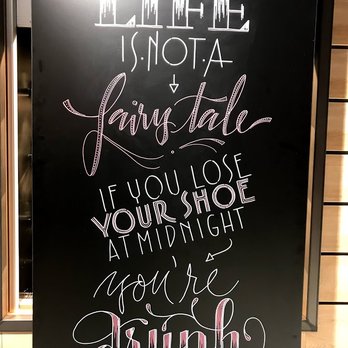 LIFE
IS.NOT.A
fairy tale
IF YOU LOSE
YOUR SHOE
AT MIDNIGHT
you're
drunk